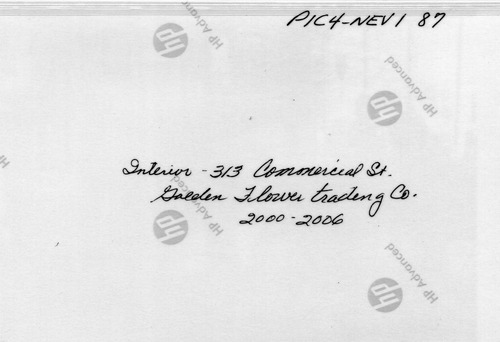 PIC4-NEV1 87
HP Advanced
HP Advanced
Interior - 313 Commercial St.
Golden Flower trading Co.
2000-2006
HP Advanced
HP Advanced